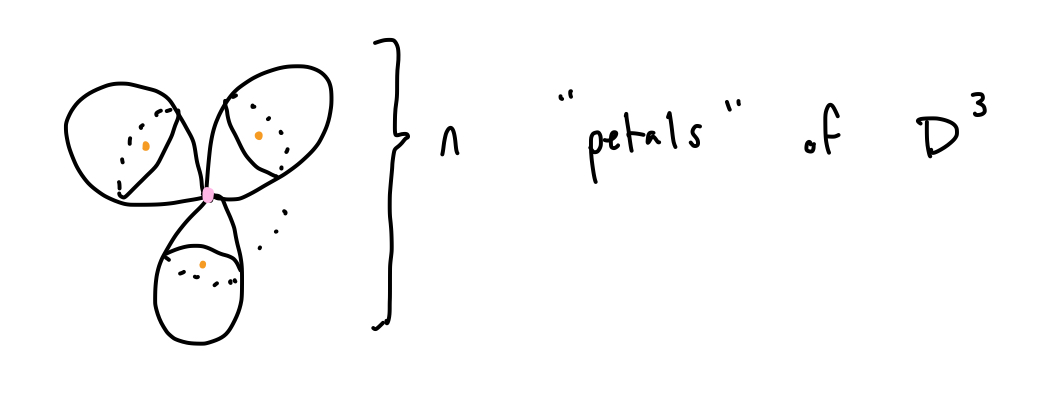 n "petals" of D³